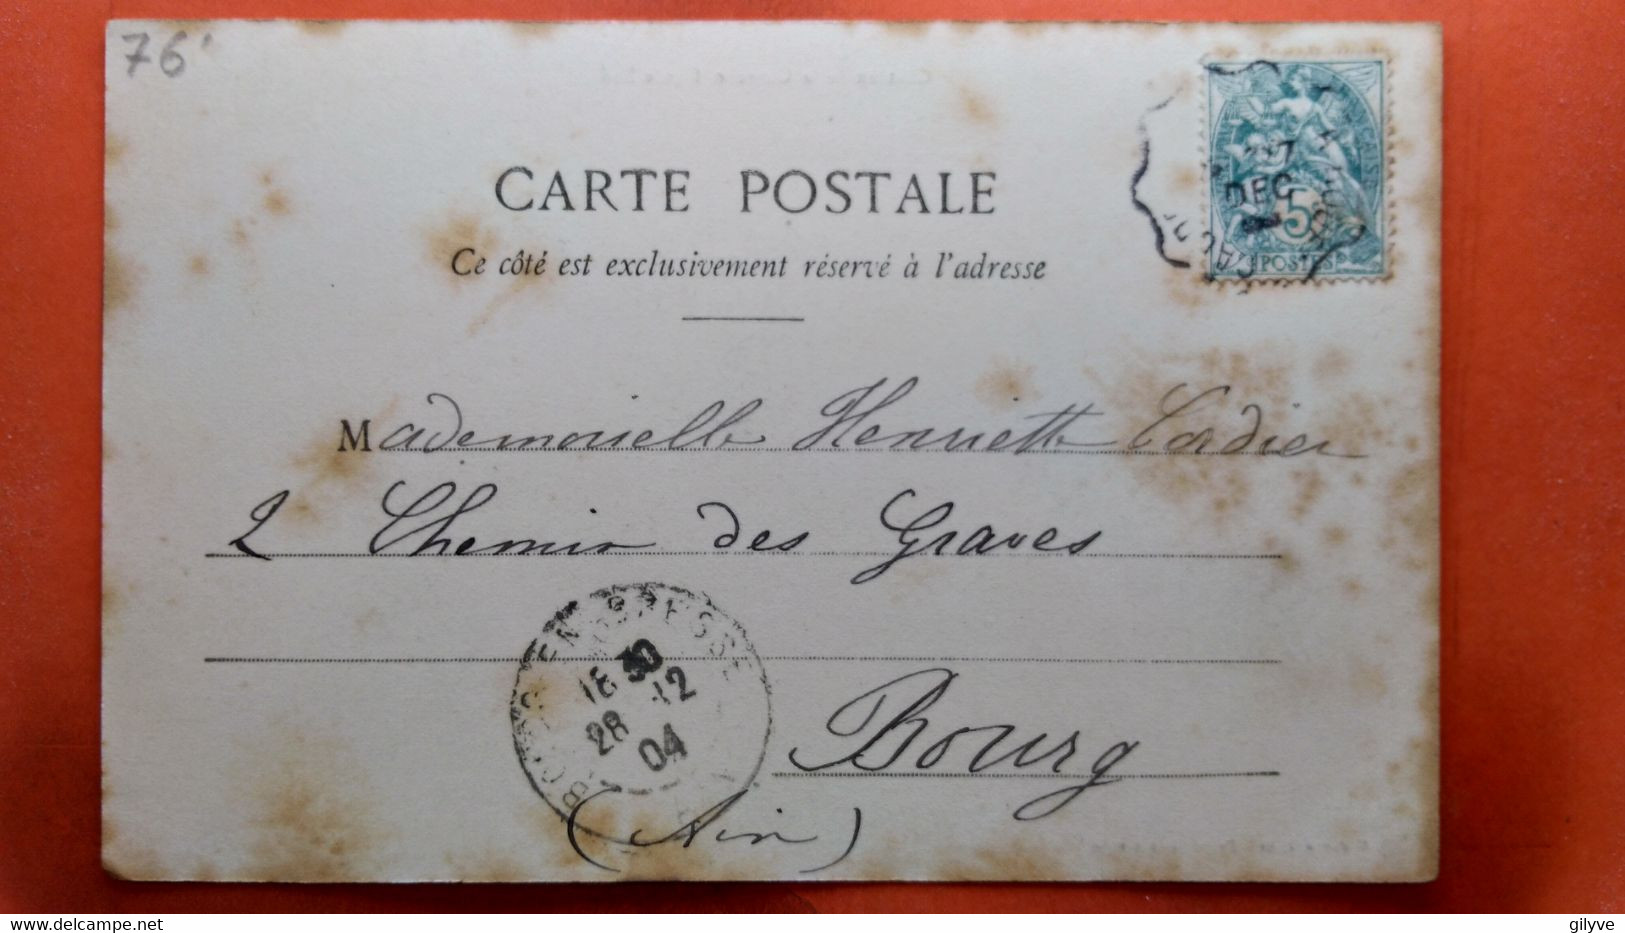 76'
CARTE POSTALE
Ce côté est exclusivement réservé à l'adresse
DEC
5
POSTES
Mademoiselle Henriette Cordier
2 Chemin des Graves
BOURG EN BRESSE
18 30
28 12
04
Bourg
(Ain)
gilyve